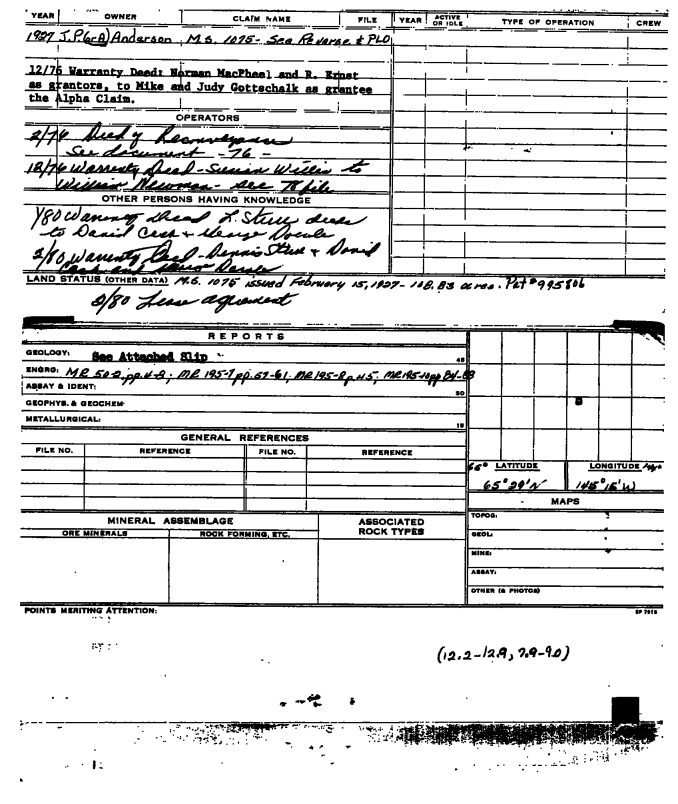 YEAR OWNER CLAIM NAME FILE YEAR ACTIVE OR IDLE TYPE OF OPERATION CREW
1927 J.P.(or A) Anderson, M.S. 1075 - See Reverse & PLO
12/76 Warranty Deed: Norman MacPheel and R. Ernst
as grantors, to Mike and Judy Gottschalk as grantee
the Alpha Claim.
OPERATORS
2/76 Deed of Reconveyance
See document - 76 -
12/76 Warranty Deed - Susan Willis to
William Newman - see 78 file
OTHER PERSONS HAVING KNOWLEDGE
1/80 Warranty Deed L. Steu deeds
to David Cash &
2/80 Warranty Deed - Dennis Steu & David
Cash and
LAND STATUS (OTHER DATA) M.S. 1075 issued February 15, 1927 - 108.83 acres. Pat #995806
2/80 Lease agreement
REPORTS
GEOLOGY: See Attached Slip 45
ENGRG: MR 50-2, pp. 4-8; MR 195-7 pp. 57-61; MR 195-8 p. 45; MR 195-10 pp 84-88
ASSAY & IDENT: 30
GEOPHYS. & GEOCHEM:
METALLURGICAL: 15
GENERAL REFERENCES
FILE NO. REFERENCE FILE NO. REFERENCE
65° LATITUDE LONGITUDE
65°29'N 145°15'W
MAPS
MINERAL ASSEMBLAGE ASSOCIATED ROCK TYPES
ORE MINERALS ROCK FORMING, ETC.
TOPOG:
GEOL:
MINE:
ASSAY:
OTHER (& PHOTOS)
POINTS MERITING ATTENTION:
(12.2-12.9, 7.9-9.0)